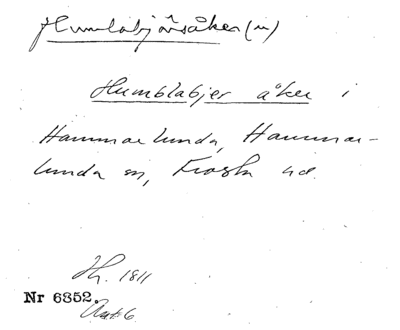 Humlabjärsåker (n)
Humblabjer åker i
Hammarlunda, Hammar-
lunda sn, Frosta hd.
Sk. 1811
Nr 6852.
Akt 6